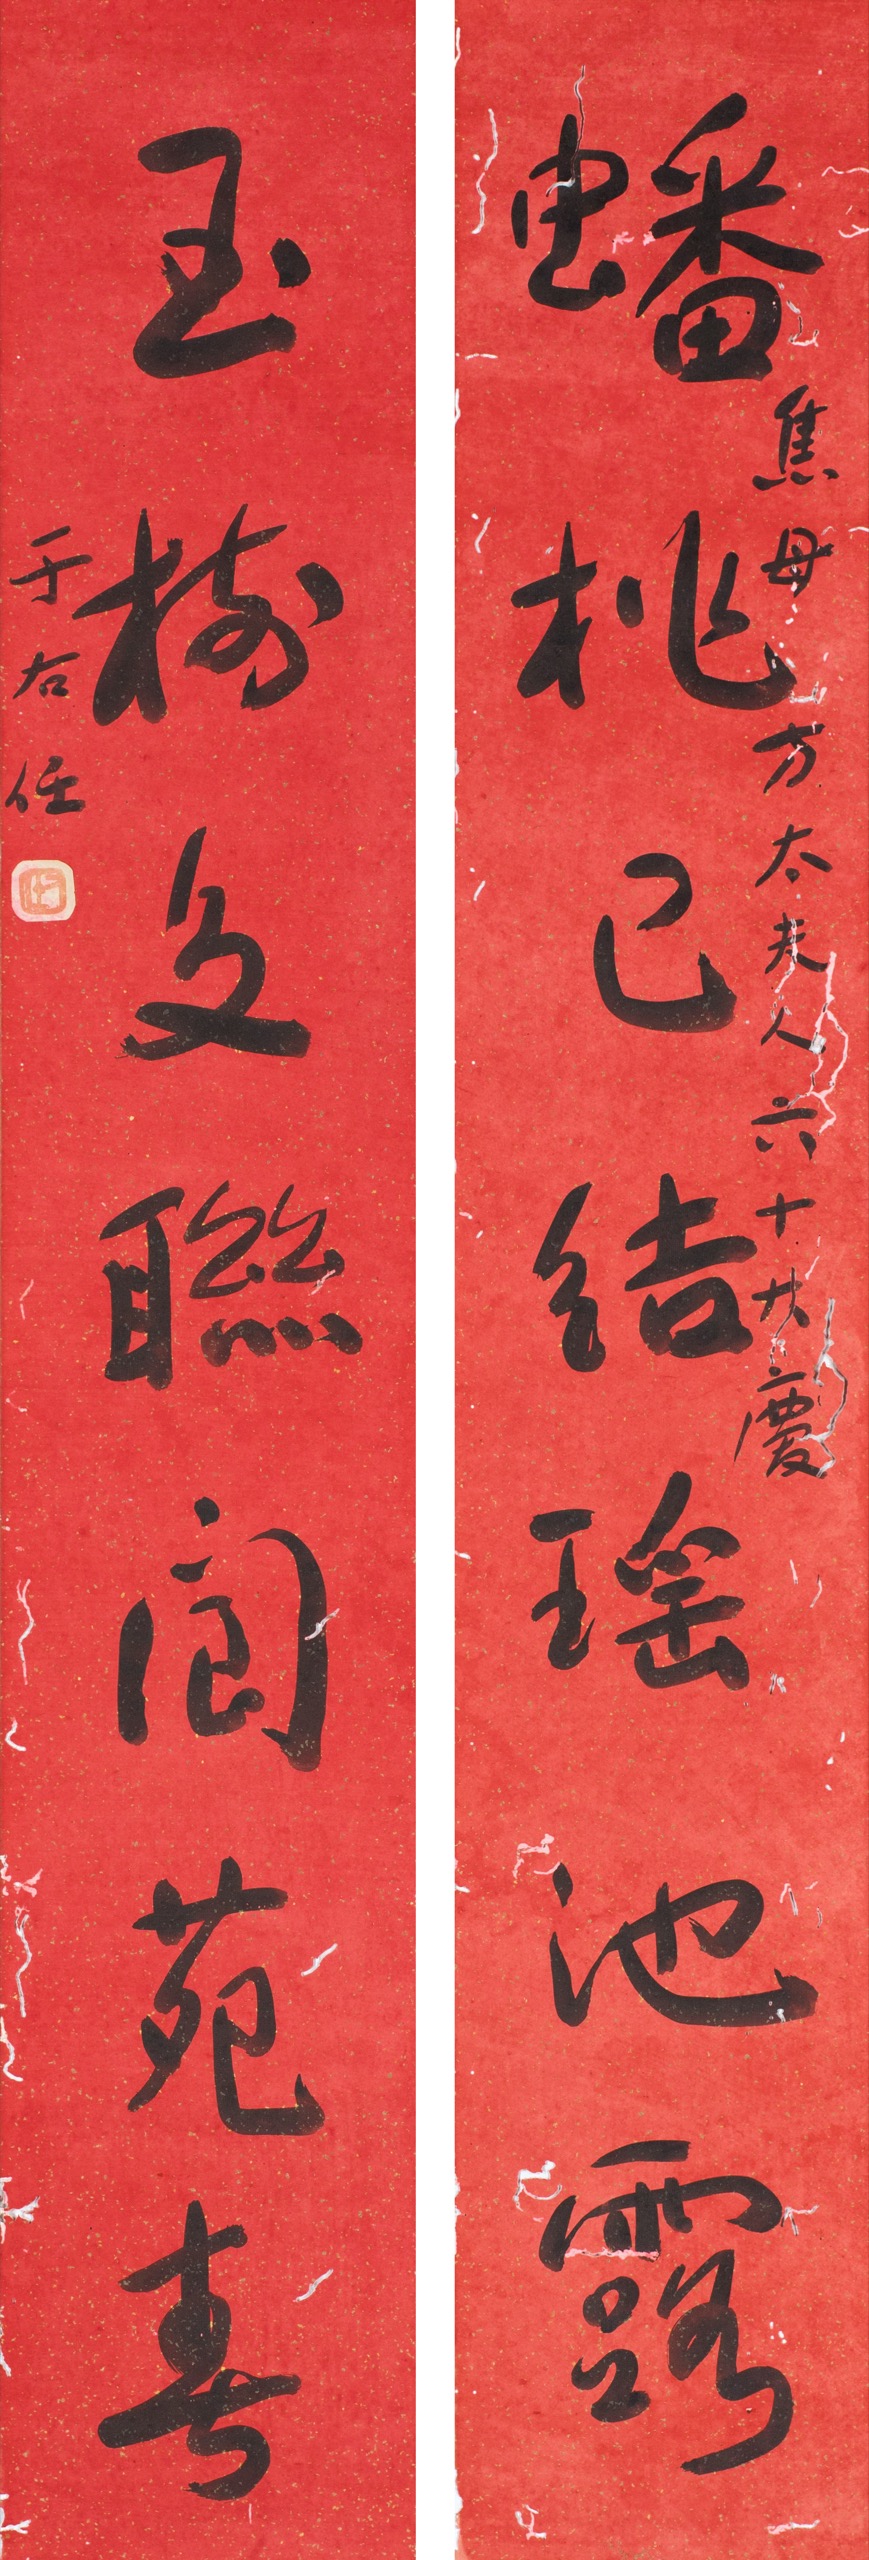 焦母方太夫人六十大慶
蟠桃已結瑤池露
玉樹交聯閬苑春
于右任